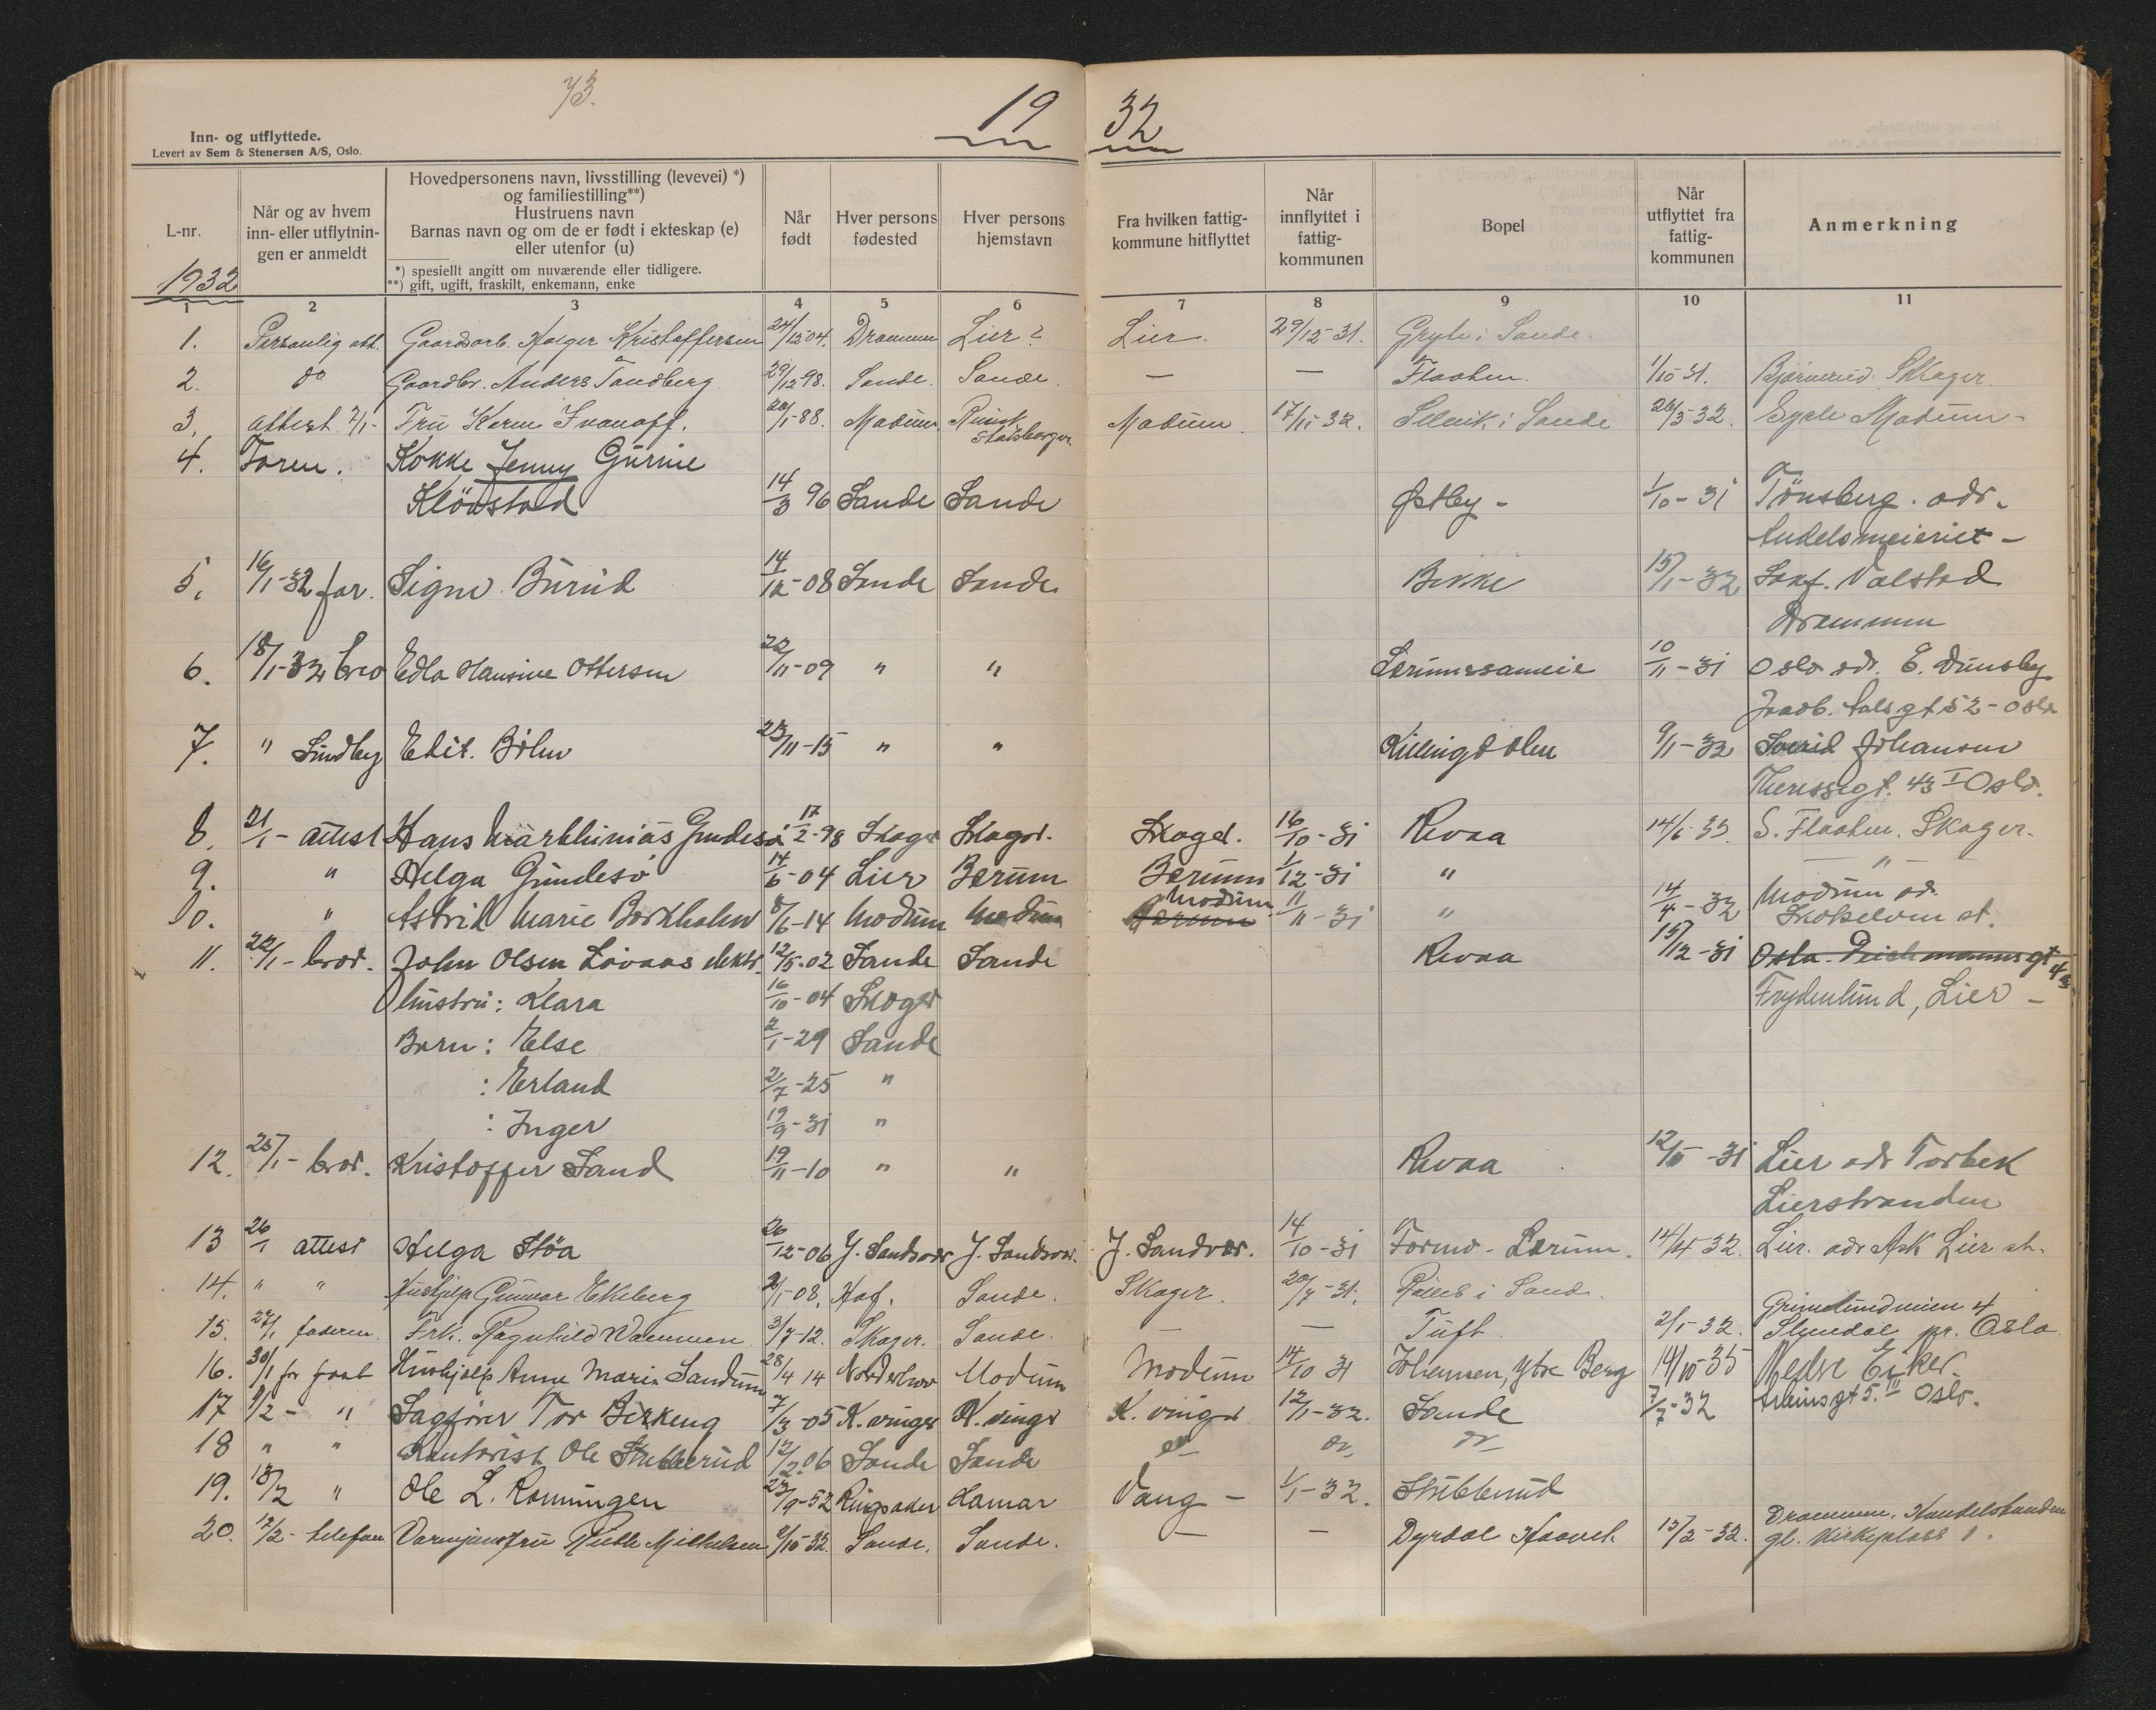 73.
19 32
Inn- og utflyttede.
Levert av Sem & Stenersen A/S, Oslo.
L-nr.
1932
Når og av hvem
inn- eller utflytnin-
gen er anmeldt
Hovedpersonens navn, livsstilling (levevei) *)
og familiestilling**)
Hustruens navn
Barnas navn og om de er født i ekteskap (e)
eller utenfor (u)
*) spesiellt angitt om nuværende eller tidligere.
**) gift, ugift, fraskilt, enkemann, enke
Når
født
Hver persons
fødested
Hver persons
hjemstavn
Fra hvilken fattig-
kommune hitflyttet
Når
innflyttet i
fattig-
kommunen
Bopel
Når
utflyttet fra
fattig-
kommunen
Anmerkning
1 2 3 4 5 6 7 8 9 10 11
1. Personlig att. Gaardsarb. Holger Kristoffersen 24/12 04. Drammen Lier? Lier. 29/12-31. Gryte i Sande.
2. do Gaardbr. Anders Tandberg 29/12-98. Sande. Sande. — — Flaaten. 1/10-31. Bjørnerud Skoger
3. attest 7/1- Fru Karen Ivanoff. 20/1-88. Modum Russisk Modum. 17/11-32. Selvik i Sande 26/3-32. Modum-
statsborger
4. Foren. Kokke Jenny Gurine
Klöustad 14/3 96 Sande Sande Østby- 1/10-31 Tönsberg. adr.
Andelsmeieriet-
5. 16/1-32 far. Signe Burud 14/12-08 Sande Sande Bekke 15/1-32 Valstad
Drammen
6. 18/1-32 brev Edla Hansine Ottersen 22/11-09 " " Lerumssameie 10/11-31 Oslo adr. E. Dunsby
Jacob Aalsgt 52-Oslo
7. " Sundby Edit. Böhn 23/11-15 " " Killingdolen 9/1-32 Johansen
Theresesgt. 43 I Oslo.
8. 21/1- attest Hans Marthinius Gundesö 17/2-98 Skoger Skoger. Skoger. 16/10-31 Revaa 14/6-33 S. Flaaten. Skoger.
9. " Helga Gundesö 14/6-04 Lier Berum Berum 1/12-31 " — " —
10. " Astrid Marie Borkholm 8/6-14 Modum Modum Modum 11/11-31 " 14/4-32 Modum adr.
Skotselven st.
11. 22/1- brev. John Olsen Lövaas 12/5-02 Sande Sande Revaa 15/12-31 Oslo Deichmannsgt
Hustru: Klara 16/10-04 Skoger Frydenlund, Lier-
Barn: Else 2/1-29 Sande
: Erland 2/7-25 "
: Inger 19/9-31 "
12. 25/1- brev. Kristoffer Sand 19/11-10 " " Revaa 12/10-31 Lier adr Torbek
Lierstranden
13 26/1 attest Helga Stöa 26/12-06 Y. Sandsver Y. Sandsver. Y. Sandver. 14/10-31 Formo-Lerum. 14/4-32. Lier. adr Ask Lier st.
14. " " Hushjelp Gunvor Ekeberg 2/1-08. Hof. Sande. Skoger. 20/7-31. i Sande.
15. 27/1 faderen. Frk. Ragnhild 3/7-12. Skoger. Sande. — — Tuft. 2/1-32. Grimelundveien 4
Slemdal pr. Oslo
16. 30/1 pr post Hushjelp Anne Marie Sandum 28/4 14 Norderhov Modum Modum 14/10 31 Johansen, Ytre Berg 14/10-35 Nedre Eiker.
17 9/2- " Sagfører Tor Birkeng 7/3-05 K.vinger K.vinger K.vinger 12/1-32. Sande 7/7-32 5. III Oslo.
18 " " Kontorist Ole Stubberud 12/2 06 Sande Sande do do
19. 13/2 " Ole L. Ramningen 23/9-52 Ringsaker Hamar Vang- 1/1-32. Stubberud
20. 12/2- telefon Ruth Mikkelsen 2/10-32. Sande. Sande. — — Dyrdal 15/2-32. Drammen, Handelsbanken
gl. Kirkeplass 1.